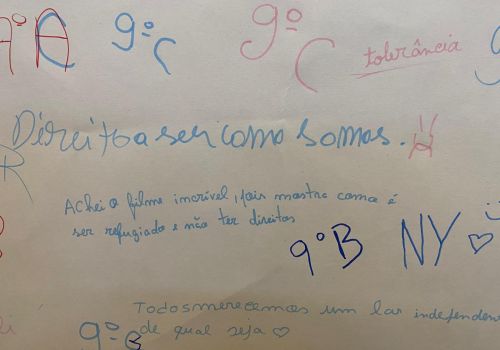 9º A
9º C
9º C
tolerância
Direito a ser como somos.
Achei o filme incrível, pois mostra como é
ser refugiado e não ter direitos
9º B
NY
Todos merecemos um lar independen
de qual seja
9º